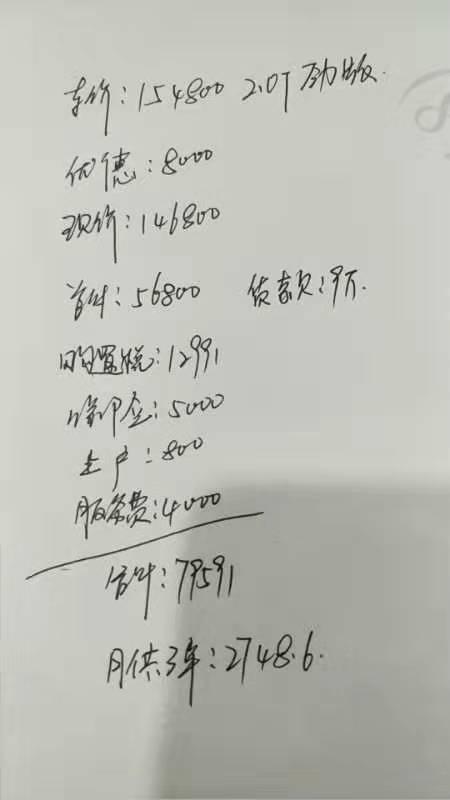 车价：154800 2.0T 劲版
优惠：8000
现价：146800
首付：56800 贷款：9万.
购置税：12991
保险金：5000
上户：800
服务费：4000
合计：79591
月供3年：2748.6.